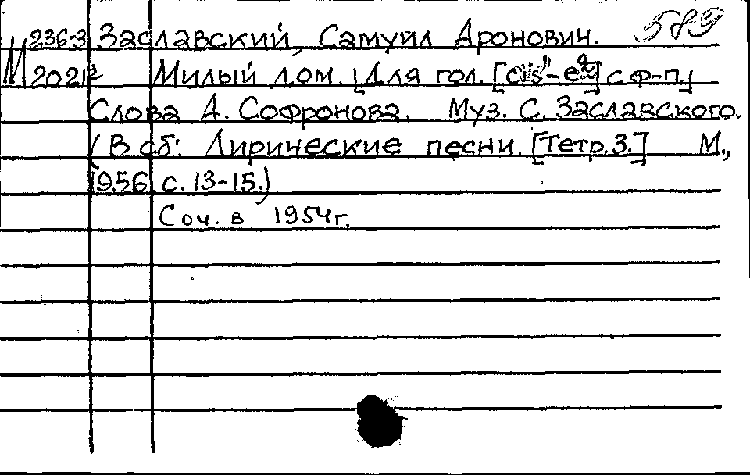 М 236-3 Заславский, Самуил Аронович. 589
2021 Милый дом. [Для гол. [cis'-e²] с ф-п.]
Слова А. Софронова. Муз. С. Заславского.
(В сб: Лирические песни. [Тетр.3.] М.,
1956 с. 13-15.)
Соч. в 1954г.